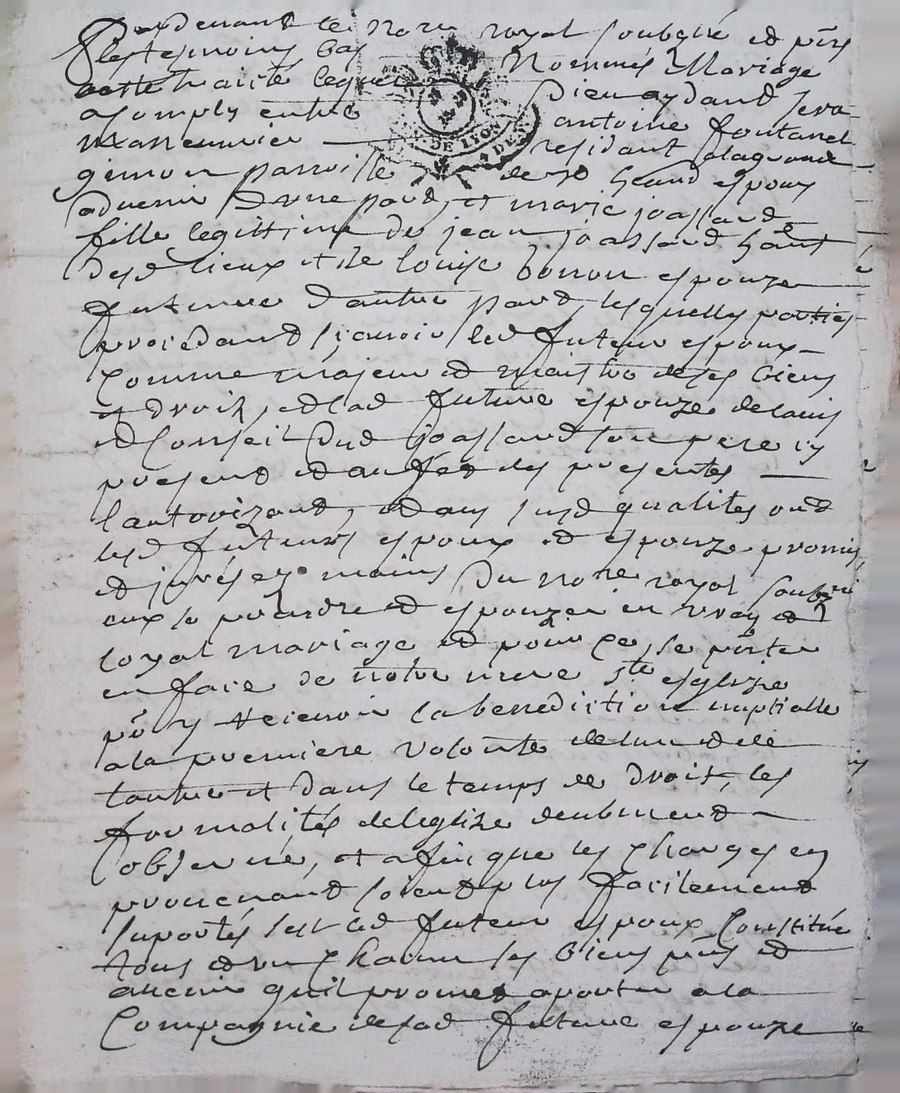 Pardevant le No.re royal soubsig.é et p.ns
les tesmoins bas Nommés Mariage
a esté traité lequel Dieu aydant sera
acomply entre antoine fontanel
residant a lagrand
gimon parroisse de st heand espoux
advenir d'une part, et marie joassard
fille legittime de jean joassard h.ant
desd lieux et de louise bonon espouze
future d'autre part, lesquelles parties
procedant sçavoir led futeur espoux
comme majeur et maistre de ses biens
et droits, et lad future espouze de lavis
et conseil dud joassard son pere icy
present et au fait des presentes
l'autorizant, et aux susd qualités ont
lesd futeurs espoux et espouze promis
et jurés ez mains du no.re royal soubz.né
eux se prendre et espouzer en vray et
loyal mariage et pour ce, se p.nter
en face de notre mere s.te esglize
p.r y recevoir la benediction nuptialle
a la premiere volonté de lun et de
lautre et dans le temps de droit, les
formalités de leglize deubment
observé, et afin que les charges en
provenant soient plus facilement
suportés sest led futeur espoux Constitué
tous et un chacun ses biens p.ns et
avenir quil promet aporter a la
Compagnie de lad future espouze
DE LYON